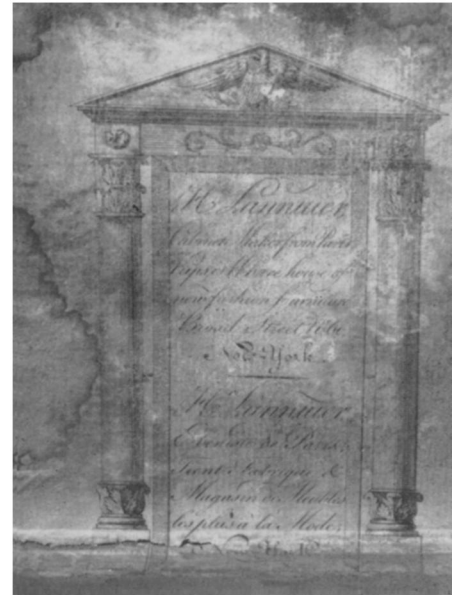 H. Lannuier,
Cabinet Maker from Paris
Kips is Whare house of
new fashion fourniture
Broad Street, No 60,
New-York
H. Lannuier,
Ebéniste de Paris,
Tient Fabrique &
Magasin de Meubles
les plus à la Mode,
New-York